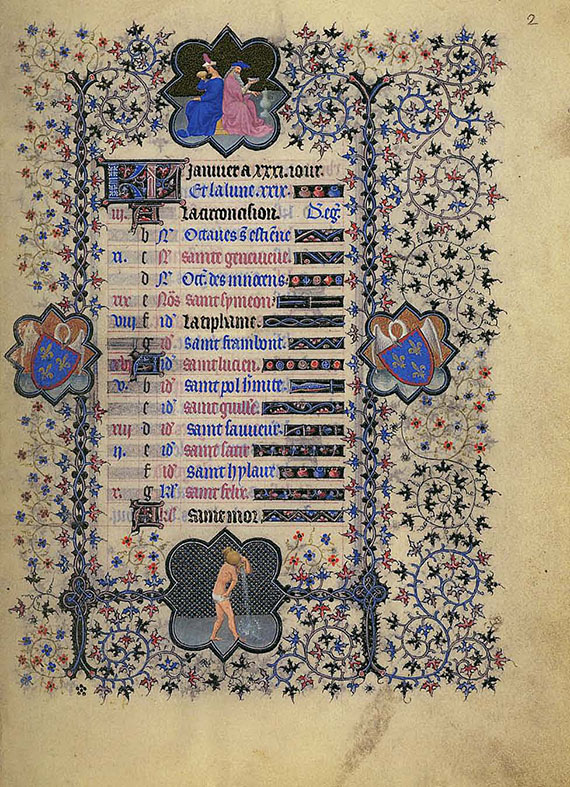 2
KL Januier a xxxi. iour.
Et la lune. xxix.
iii. A La circoncision. D. eg̃.
b N̄ Octaues s̃ estiẽne
xi. c N̄ sainte geneuieue.
d N̄ Oct̃. des innocens.
xix e Nõs saint symeon.
viii f id̃ La tiphaine.
g id̃ saint frambout.
xvi A id̃ saint lucien.
v. b id̃ saint pol h̃mite.
c id̃ saint guill̃e.
xiii d id̃ saint sauueur.
ii. e id̃ saint satir
f id̃ saint hylaire
x. g kl̃. saint felix.
A kl̃ saint mor.